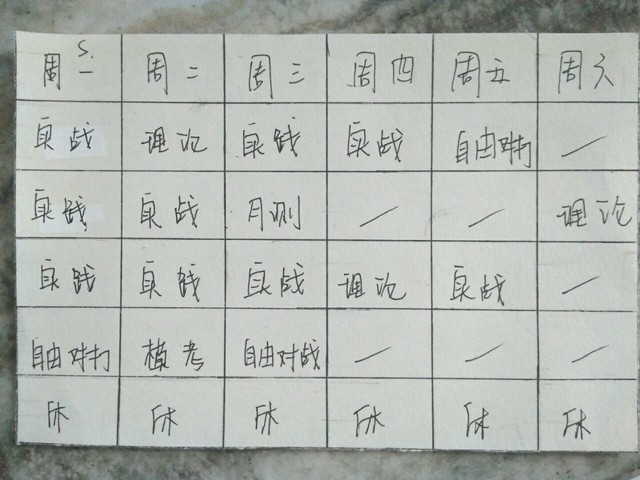 S.
周一 周二 周三 周四 周五 周六
实战 理论 实践 实战 自由对打 /
实践 实战 月测 / / 理论
实践 实践 实战 理论 实战 /
自由对打 模考 自由对战 / / /
休 休 休 休 休 休